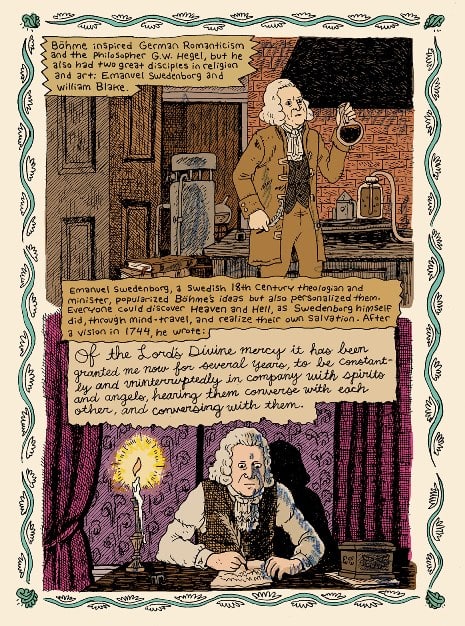 Böhme inspired German Romanticism
and the Philosopher G.W. Hegel, but he
also had two great disciples in religion
and art: Emanuel Swedenborg and
William Blake.
Emanuel Swedenborg, a Swedish 18th Century theologian and
minister, popularized Böhme's ideas but also personalized them.
Everyone could discover Heaven and Hell, as Swedenborg himself
did, through mind-travel, and realize their own salvation. After
a vision in 1744, he wrote:
Of the Lord's Divine mercy it has been
granted me now for several years, to be constant-
ly and uninterruptedly in company with spirits
and angels, hearing them converse with each
other, and conversing with them.